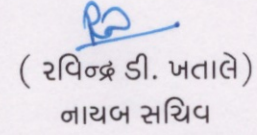 ( રવિન્દ્ર ડી. ખતાલે)
નાયબ સચિવ